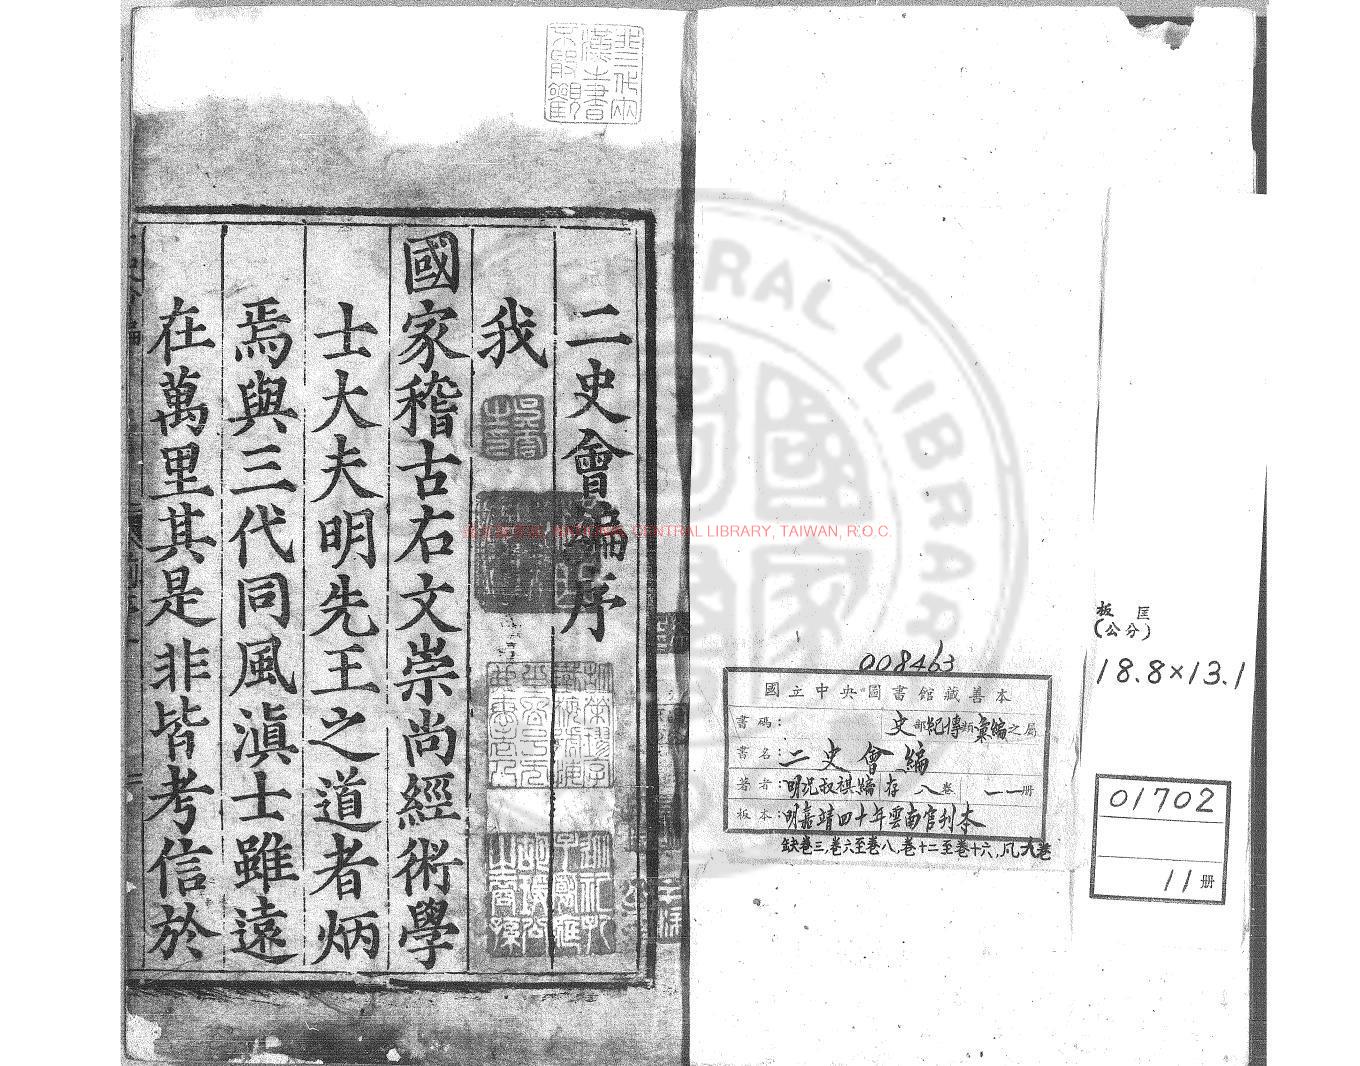 二史會編序
我
國家稽古右文崇尚經術學
士大夫明先王之道者炳
焉與三代同風滇士雖遠
在萬里其是非皆考信於
008463
國立中央圖書館藏善本
書碼： 史部紀傳類彙編之屬
書名：二史會編
著者：明況叔祺編 存八卷 一一册
板本：明嘉靖四十年雲南官刊本
缺卷三,卷六至卷八,卷十二至卷十六,凡九卷
板匡
(公分)
18.8×13.1
01702
11册
NATIONAL CENTRAL LIBRARY, TAIWAN, R.O.C.